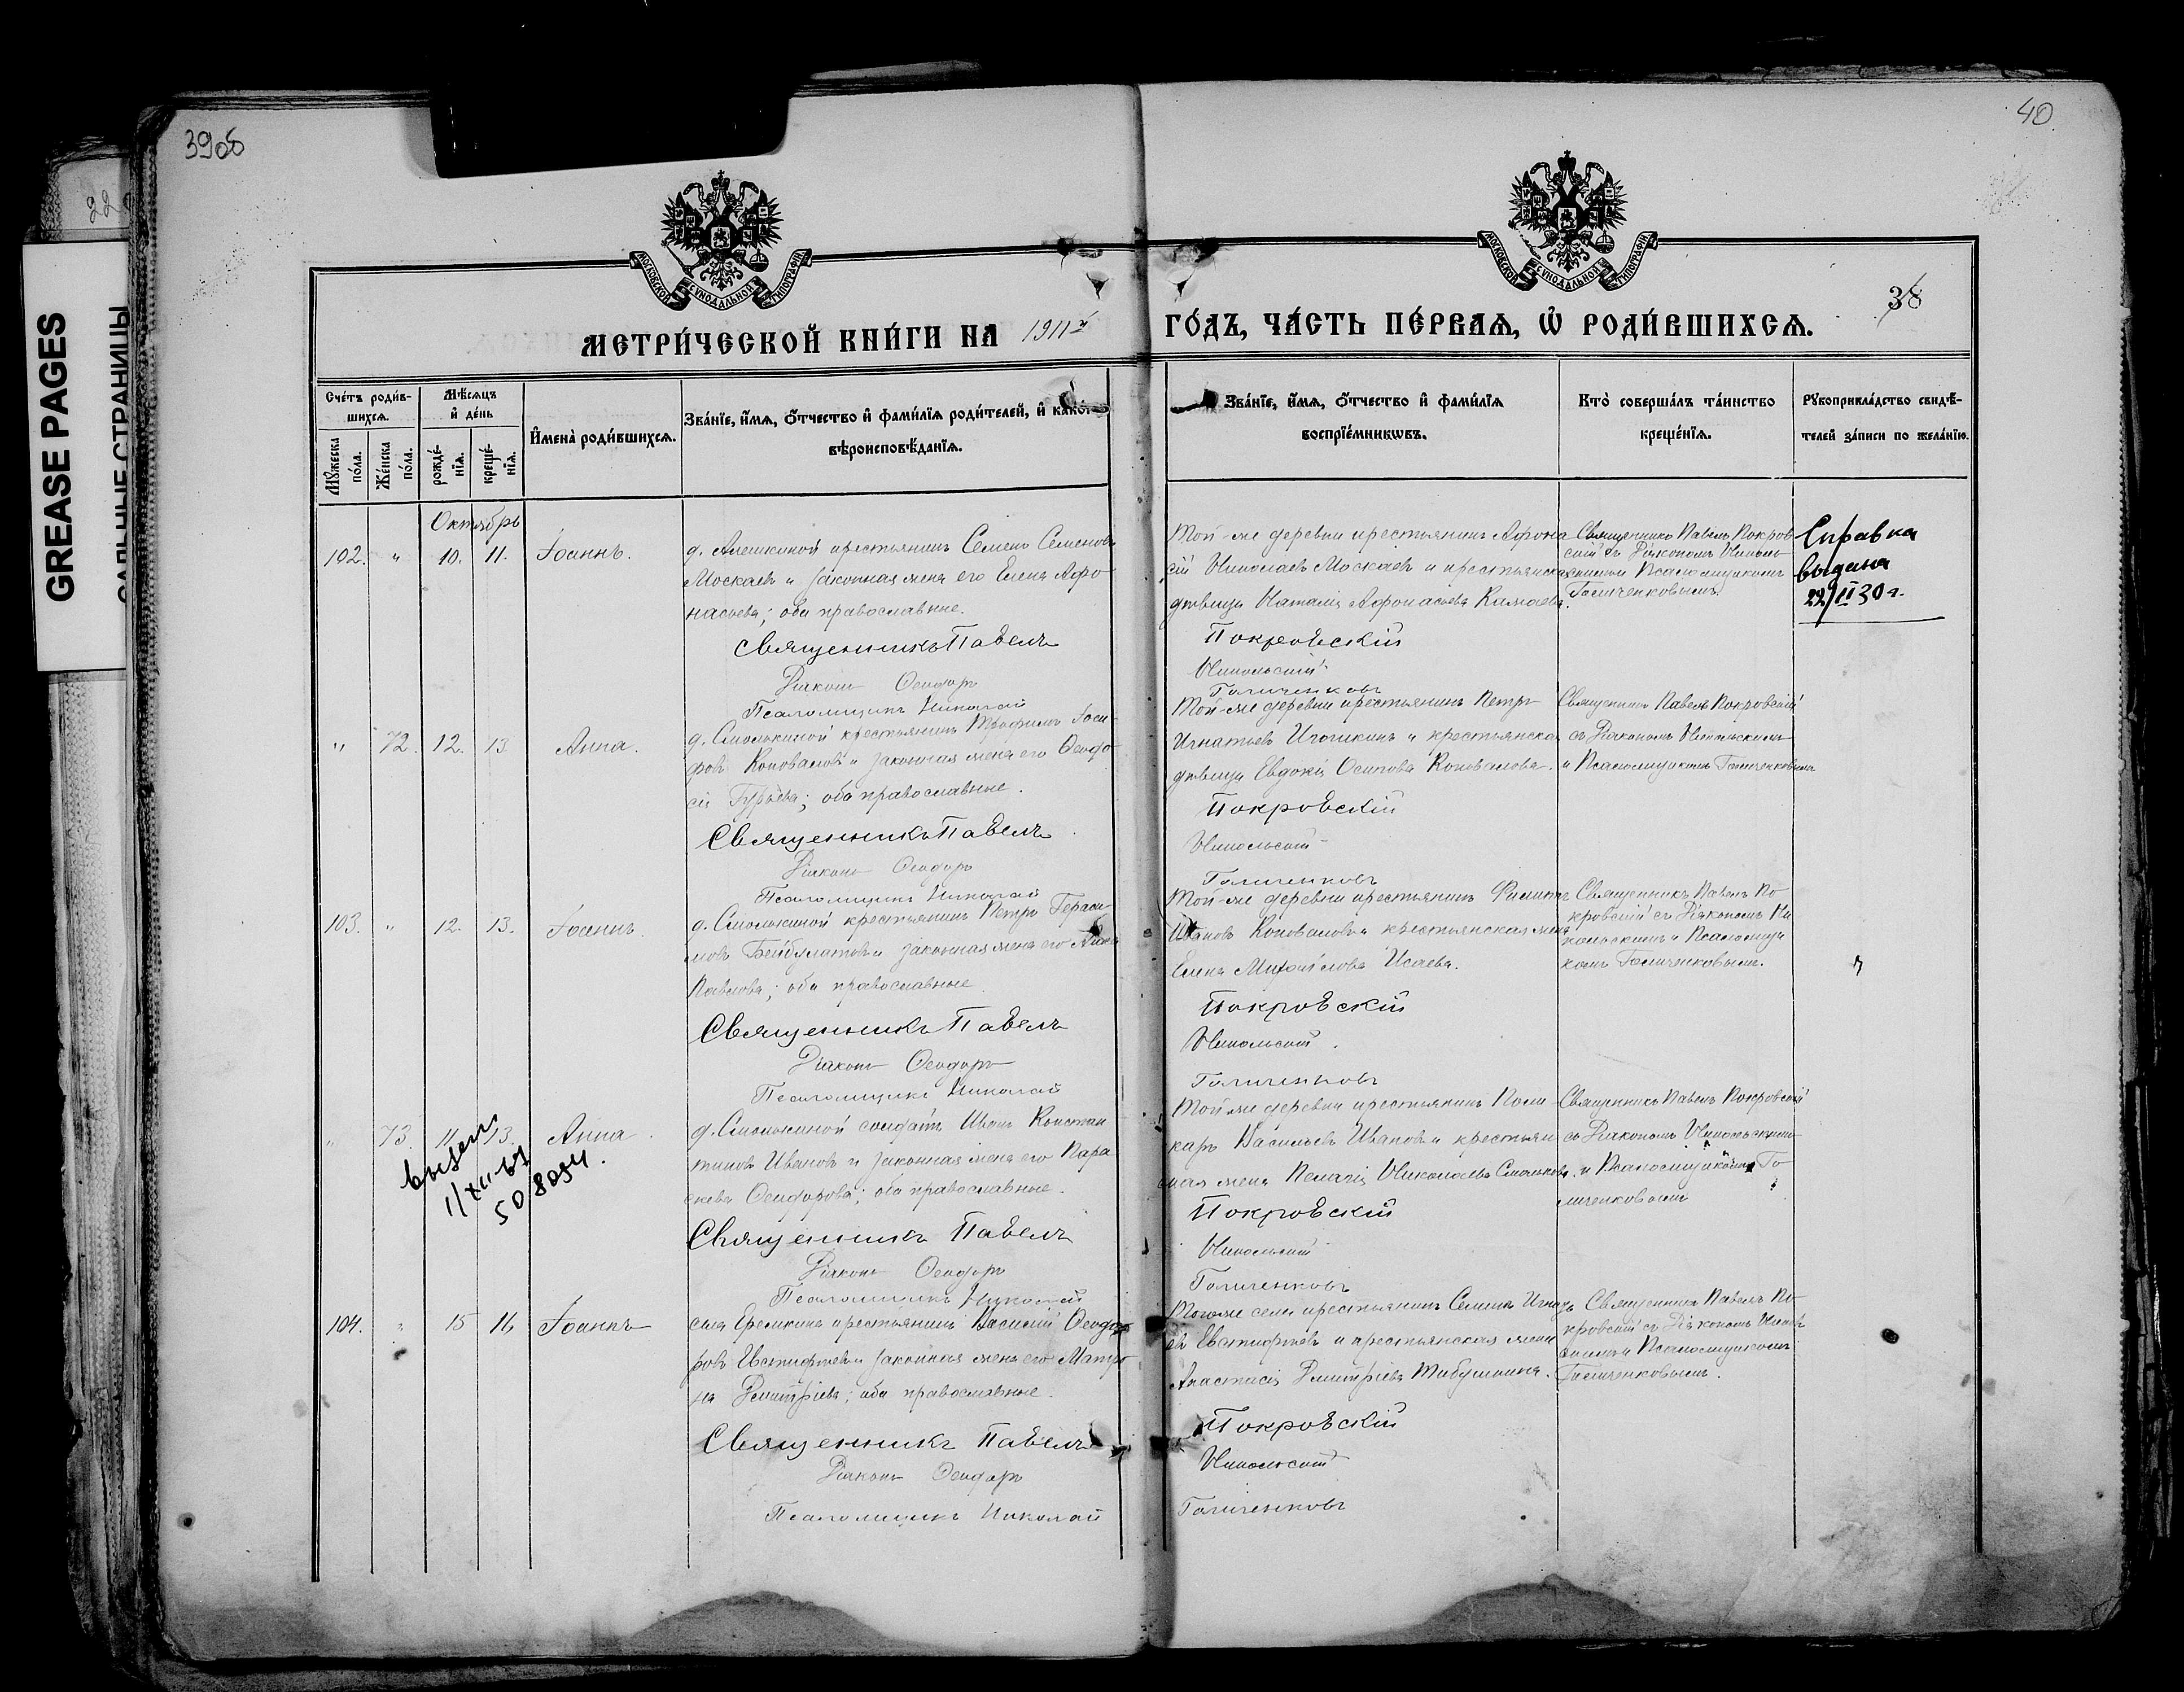 39об
40
22
GREASE PAGES
САЛЬНЫЕ СТРАНИЦЫ
МОСКОВСКОЙ СѴНОДАЛЬНОЙ ТИПОГРАФІИ
МОСКОВСКОЙ СѴНОДАЛЬНОЙ ТИПОГРАФІИ
38
МЕТРИ́ЧЕСКОЙ КНИ́ГИ НА 1911й
ГО́ДЪ, ЧА́СТЬ ПЕ́РВАЯ, Ѡ҆ РОДИ́ВШИХСЯ.
Сче́тъ роди́в-
шихся.
Мꙋ́жеска по́ла.
Же́нска по́ла.
Мѣ́сяцъ
и҆ де́нь
рожде́-
нїя.
креще́-
нїя.
И҆мена̀ роди́вшихся.
Зва́нїе, и҆́мя, о҆́тчество и҆ фами́лїя роди́телей, и҆ како́гѡ
вѣроисповѣ́данїя.
Зва́нїе, и҆́мя, о҆́тчество и҆ фами́лїя
воспрїе́мникѡвъ.
Кто̀ соверша́лъ та́инство
креще́нїя.
Рꙋкоприкла́дство свидѣ́-
телей за́писи по жела́нїю.
Октябрь
102. " 10. 11. Іоаннъ.
д. Алешкиной крестьянинъ Семенъ Семеновъ
Москаевъ и законная жена его Елена Афо-
насьева; оба православные.
Священникъ Павелъ
Діаконъ Ѳеодоръ
Псаломщикъ Николай
Той-же деревни крестьянинъ Афона-
сій Николаевъ Москаевъ и крестьянская
дѣвица Наталія Афонасьева Камаева.
Покровскій
Никольскій
Голиченковъ
Священникъ Павелъ Покров-
скій съ Діакономъ Николь-
скимъ и Псаломщикомъ
Голиченковымъ
Справка
выдана
22/II 30 г.
" 72. 12. 13. Анна.
д. Смолькиной крестьянинъ Трофимъ Іоси-
фовъ Коноваловъ и законная жена его Ѳеодо-
сія Гурьева; оба православные.
Священникъ Павелъ
Діаконъ Ѳеодоръ
Псаломщикъ Николай
Той-же деревни крестьянинъ Петръ
Игнатьевъ Игошкинъ и крестьянская
дѣвица Евдокія Осипова Коновалова.
Покровскій
Никольскій
Голиченковъ
Священникъ Павелъ Покровскій
съ Діакономъ Никольскимъ
и Псаломщикомъ Голиченковымъ
103. " 12. 13. Іоаннъ.
д. Смолькиной крестьянинъ Петръ Гераси-
мовъ Бейбулатовъ и законная жена его
Павлова; оба православные.
Священникъ Павелъ
Діаконъ Ѳеодоръ
Псаломщикъ Николай
Той-же деревни крестьянинъ Филиппъ
Ивановъ Коноваловъ и крестьянская жена
Елена Михайлова Исаева.
Покровскій
Никольскій.
Голиченковъ
Священникъ Павелъ По-
кровскій съ Діакономъ Ни-
кольскимъ и Псаломщи-
комъ Голиченковымъ.
" 73. 11. 13. Анна.
выдан
1/XII-67
508054.
д. Смолькиной солдатъ Иванъ Констан-
тиновъ Ивановъ и законная жена его Пара-
скева Ѳеодорова; оба православные.
Священникъ Павелъ
Діаконъ Ѳеодоръ
Псаломщикъ Николай
Той-же деревни крестьянинъ Поли-
карпъ Васильевъ Ивановъ и крестьян-
ская жена Пелагія Николаева Смолькова.
Покровскій
Никольскій
Голиченковъ
Священникъ Павелъ Покровскій
съ Діакономъ Никольскимъ
и Псаломщикомъ Го-
личенковымъ
104. " 15 16 Іоаннъ
села Еремкина крестьянинъ Василій Ѳеодо-
ровъ Евстифѣевъ и законная жена его Матро-
на Димитріева; оба православные.
Священникъ Павелъ
Діаконъ Ѳеодоръ
Псаломщикъ Николай
Того-же села крестьянинъ Семенъ Игнать-
евъ Евстифѣевъ и крестьянская жена
Анастасія Димитріева Табушкина.
Покровскій
Никольскій
Голиченковъ
Священникъ Павелъ По-
кровскій съ Діакономъ Николь-
скимъ и Псаломщикомъ
Голиченковымъ.